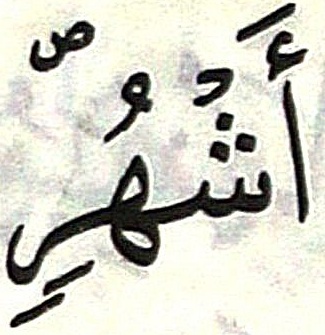 أَشْهُرٍ ص